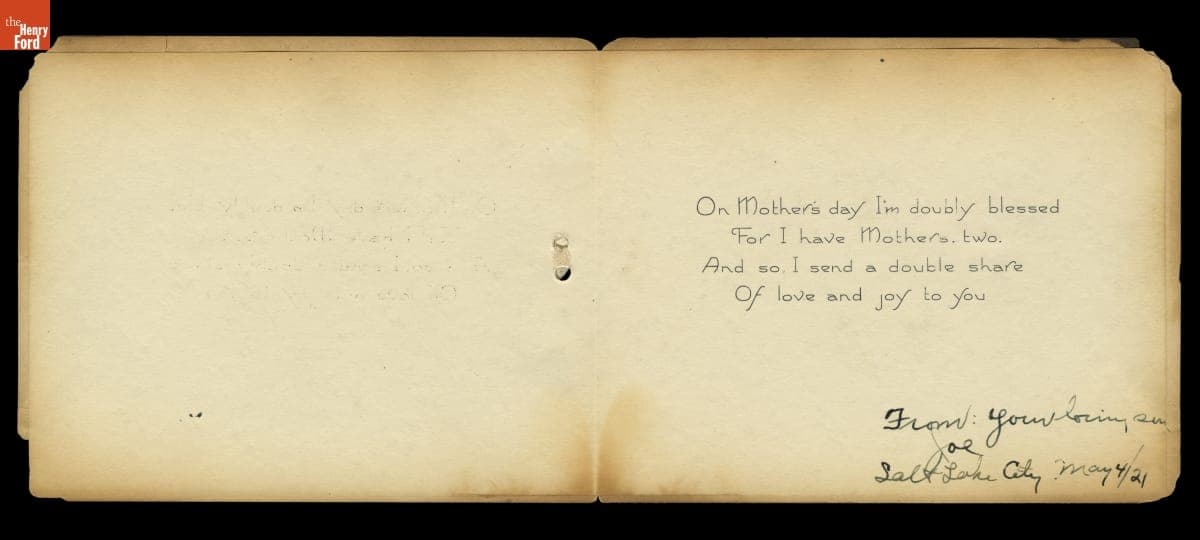 the
Henry
Ford
On Mother's day I'm doubly blessed
For I have Mothers, two.
And so, I send a double share
Of love and joy to you
From: Your loving son
Joe
Salt Lake City. May 4/21